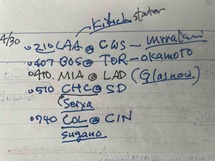 Kikuchi starter
4/30
0210 LAA @ CWS – Murakami
0407 BOS @ TOR – OKAMOTO
0410. MIA @ LAD (Glasnow)
0510 CHC @ SD
(Seiya)
0740 COL @ CIN
sugano